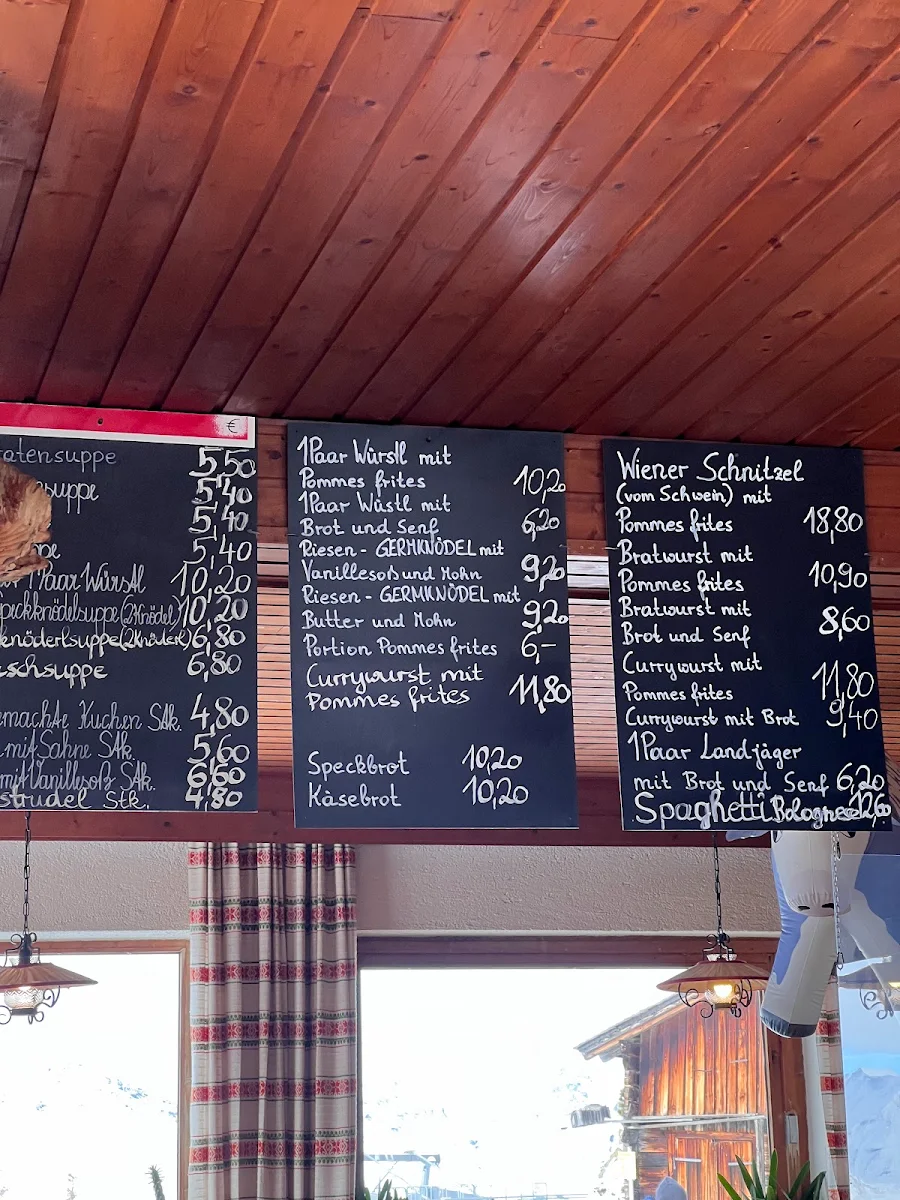 €
suppe 5,50
suppe 5,40
5,40
5,40
Paar Würstl 10,20
peckknödelsuppe (2Knödel) 10,20
knöderlsuppe (2Knödel) 6,80
schsuppe 6,80
emachte Kuchen Stk. 4,80
mit Sahne Stk. 5,60
mit Vanillesoß Stk. 6,60
strudel Stk. 4,80
1Paar Würstl mit
Pommes frites 10,20
1Paar Wüstl mit
Brot und Senf 6,20
Riesen - GERMKNÖDEL mit
Vanillesoß und Mohn 9,20
Riesen - GERMKNÖDEL mit
Butter und Mohn 9,20
Portion Pommes frites 6,-
Currywurst mit
Pommes frites 11,80
Speckbrot 10,20
Käsebrot 10,20
Wiener Schnitzel
(vom Schwein) mit
Pommes frites 18,80
Bratwurst mit
Pommes frites 10,90
Bratwurst mit
Brot und Senf 8,60
Currywurst mit
Pommes frites 11,80
Currywurst mit Brot 9,40
1Paar Landjäger
mit Brot und Senf 6,20
Spaghetti Bolognese 12,60